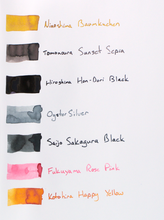 Baamkuchen
Tomonoura Sunset Sepia
Hiroshima Han-Dori Black
Oyster Silver
Saijo Sakagura Black
Fukuyama Rose Pink
Happy Yellow